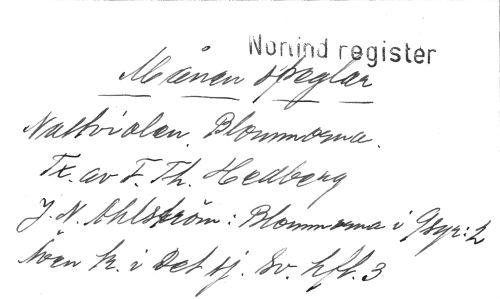 Nonind register
Månen speglar
Nattviolen. Blommorna.
Tx. av F. Th. Hedberg
J. N. Ahlström: Blommorna i 9 syr: 2
Även tr. i Det sj. Sv. hft. 3